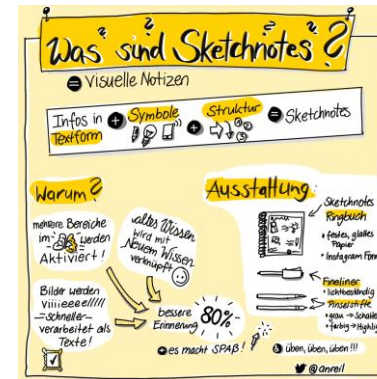 Was sind Sketchnotes?
= Visuelle Notizen
Infos in Textform + Symbole + Struktur = Sketchnotes
Warum?
mehrere Bereiche
im werden
Aktiviert!
altes Wissen
wird mit
Neuem Wissen
verknüpft
Bilder werden
Viiieeeellllll
schneller
verarbeitet als
Texte!
bessere
Erinnerung
80%
+ es macht SPAß!
Ausstattung:
Sketchnotes
Ringbuch
• festes, glattes
Papier
• Instagram
Fineliner
• lichtbeständig
Pinselstifte
• grau → 
• farbig → 
üben, üben, üben!!!
@anreil